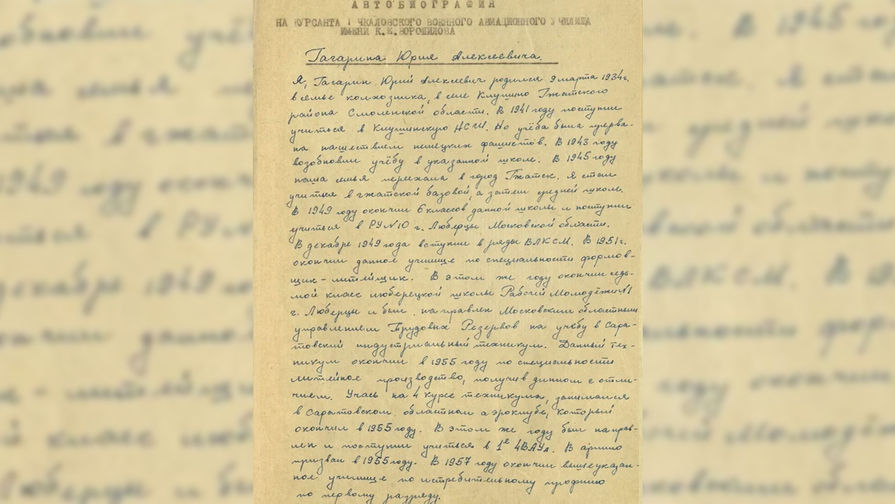 АВТОБИОГРАФИЯ
НА КУРСАНТА 1 ЧКАЛОВСКОГО ВОЕННОГО АВИАЦИОННОГО УЧИЛИЩА
ИМЕНИ К.Е.ВОРОШИЛОВА
Гагарина Юрия Алексеевича.
Я, Гагарин Юрий Алексеевич родился 9 марта 1934г.
в семье колхозника, в селе Клушино Гжатского
района Смоленской области. В 1941 году поступил
учиться в Клушинскую НСШ. Но учёба была прерва-
на нашествием немецких фашистов. В 1943 году
возобновил учёбу в указанной школе. В 1945 году
наша семья переехала в город Гжатск. Я стал
учиться в гжатской базовой, а затем средней школе.
В 1949 году окончил 6 классов данной школы и поступил
учиться в РУ №10 г. Люберцы Московской области.
В декабре 1949 года вступил в ряды ВЛКСМ. В 1951 г.
окончил данное училище по специальности формов-
щик-литейщик. В этом же году окончил седь-
мой класс люберецкой школы Рабочей Молодёжи №1
г. Люберцы и был направлен Московским областным
управлением Трудовых Резервов на учёбу в Сара-
товский индустриальный техникум. Данный тех-
никум окончил в 1955 году по специальности
литейное производство, получив диплом с отли-
чием. Учась на 4 курсе техникума, занимался
в Саратовском областном аэроклубе, который
окончил в 1955 году. В этом же году был направ-
лен и поступил учиться в 1е ЧВАУл. В армию
призван в 1955 году. В 1957 году окончил вышеуказан-
ное училище по истребительному профилю
по первому разряду.